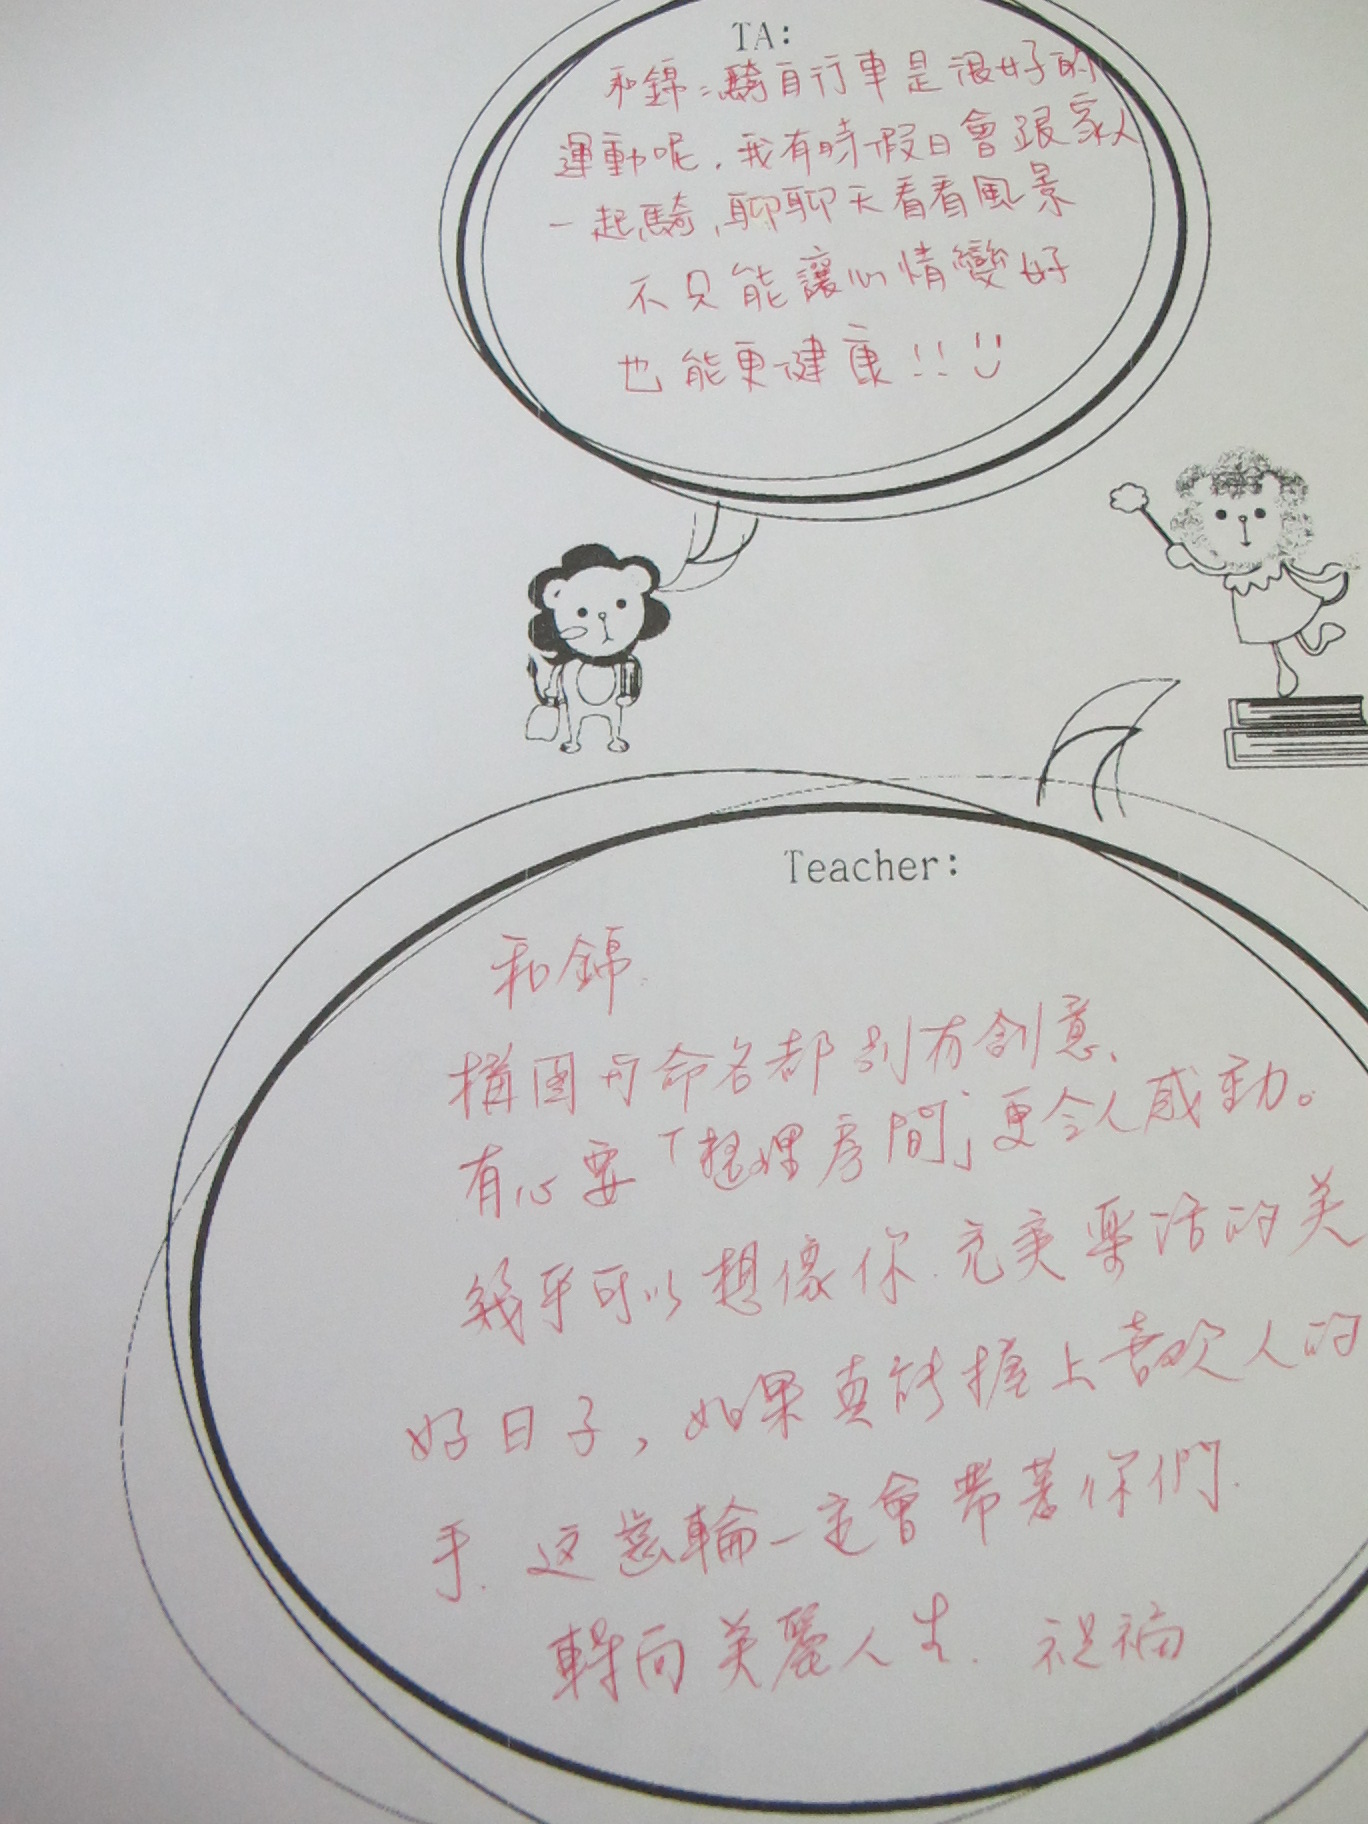 TA:
和錦：騎自行車是很好的
運動呢，我有時假日會跟家人
一起騎，聊聊天看看風景
不只能讓心情變好
也能更健康！！
Teacher:
和錦.
構圖與命名都別有創意、
有心要「整理房間」更令人感動。
幾乎可以想像你.充実樂活的美
好日子，如果真能握上喜歡人的
手.这齒輪一定會帶著你們.
轉向美麗人生.祝福